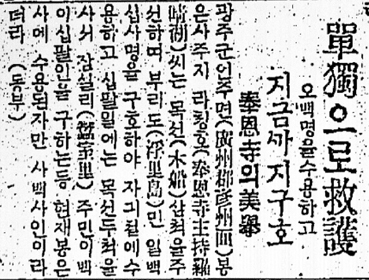 單獨으로救護
오백명을수용하고
지금까지구호
奉恩寺의美擧
광주군언주면(廣州郡彦州面)봉
은사주지 라청호(奉恩寺主持羅
晴湖)씨는 목선(木船)삼척을주
선하며 부리도(浮里島)민 일백
십사명을 구호하야 자긔절에수
용하고 십팔일에는 목선두척을
사서 잠실리(蠶室里) 주민이백
이십팔인을 구하는등 현재봉은
사에 수용된자만 사백사인이라
더라 (동부)